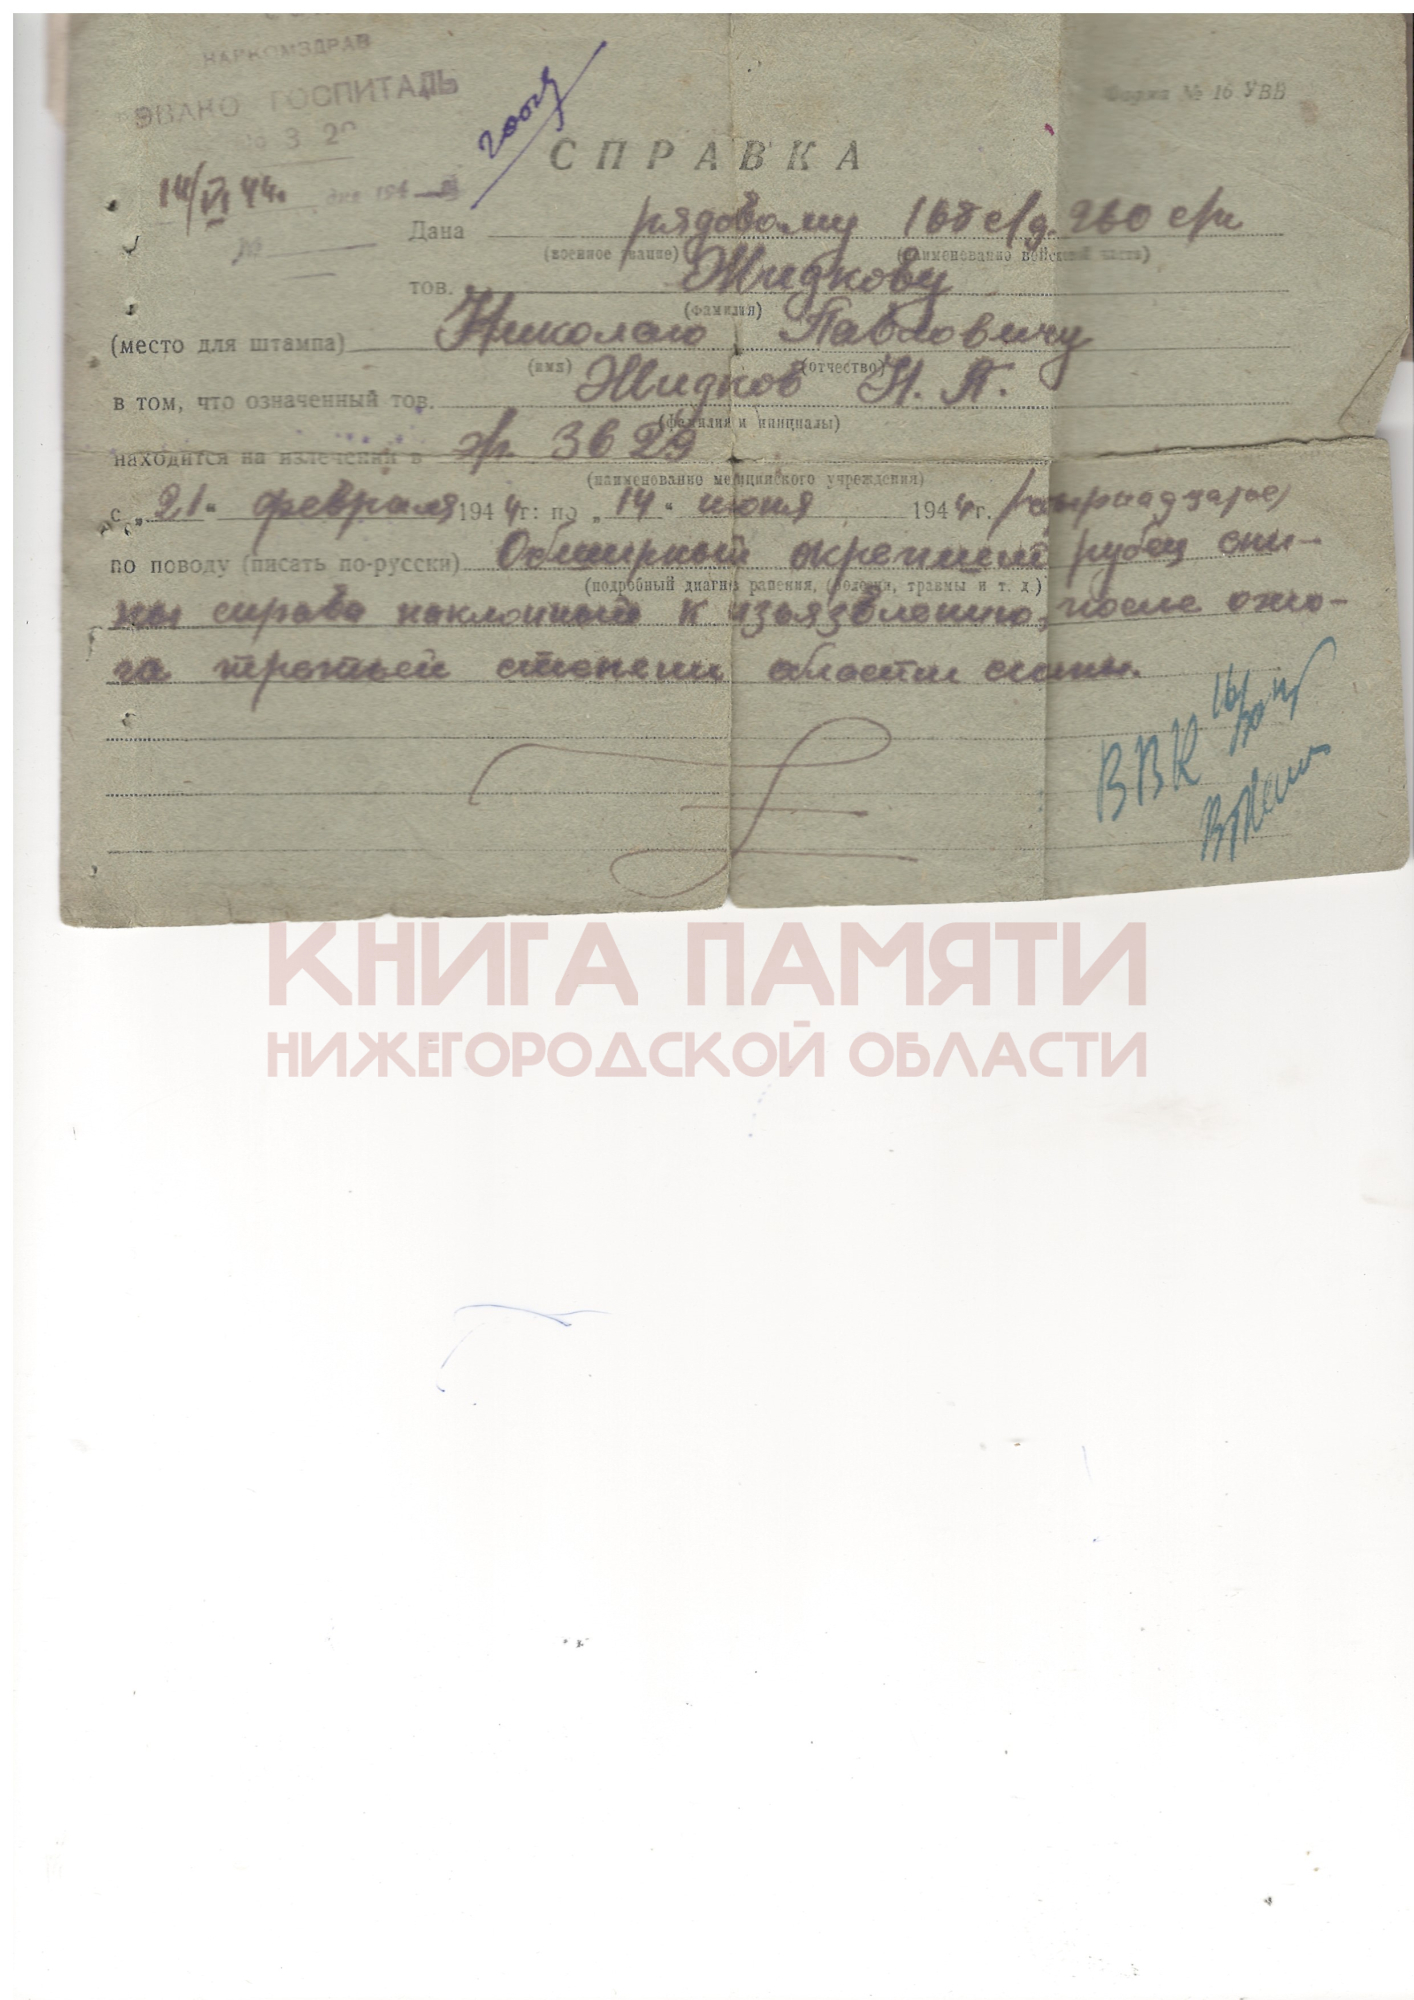 НАРКОМЗДРАВ
ЭВАКО ГОСПИТАЛЬ
Форма № 16 УВВ
СПРАВКА
14/VI 44. дня 194
Дана рядовому с/д. 260 с/п
№
(военное звание) (наименованио войсковой части)
тов. Жидкову
(фамилия)
(место для штампа) Николаю Павловичу
(имя) (отчество)
в том, что означенный тов. Жидков Н. П.
(фамилия и инициалы)
находится на излечении в э/г. 3629
(наименованио медицинского учреждения)
с „21" февраля 1944 г. по „14" июня 1944 г. (четырнадцатое)
по поводу (писать по-русски) Обширный окрепший рубец спи-
(подробный диагноз ранения, болезни, травмы и т. д.)
ны справа наклонный к изъязвлению, после ожо-
га третьей степени области спины.
ВВК
КНИГА ПАМЯТИ
НИЖЕГОРОДСКОЙ ОБЛАСТИ